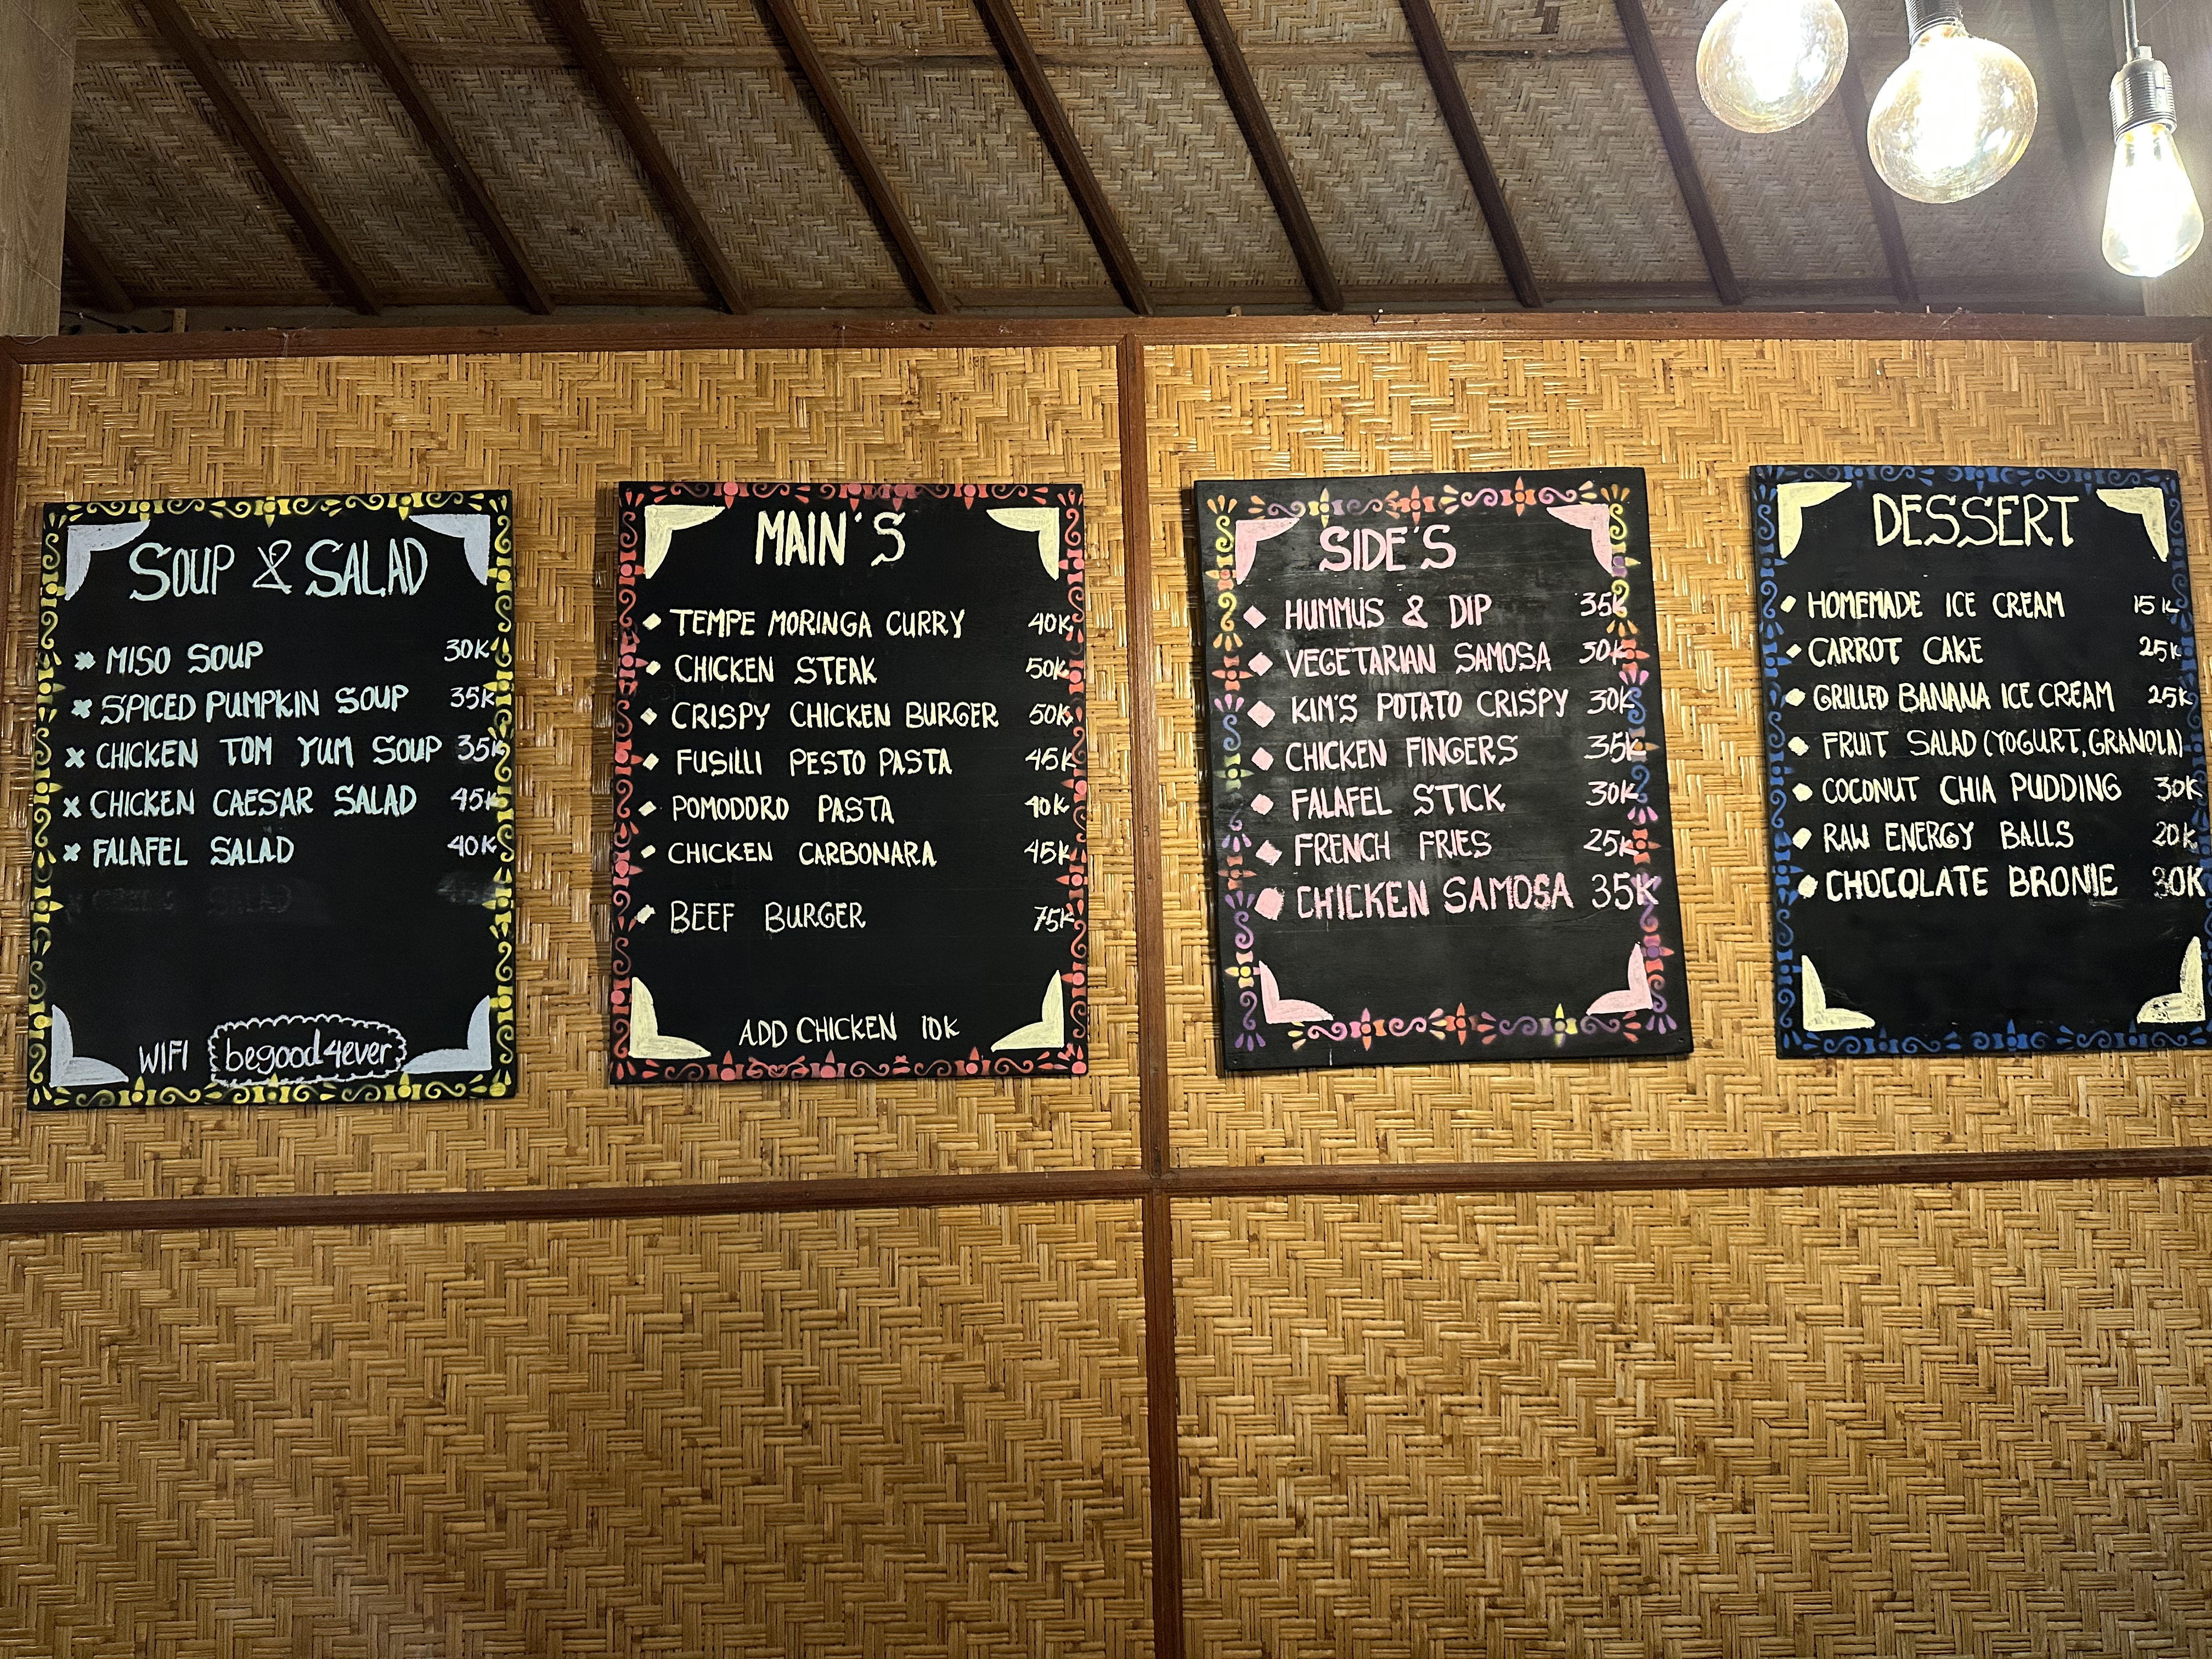 SOUP & SALAD
MISO SOUP 30K
SPICED PUMPKIN SOUP 35K
CHICKEN TOM YUM SOUP 35K
CHICKEN CAESAR SALAD 45K
FALAFEL SALAD 40K
SALAD
WIFI begood4ever
MAIN'S
TEMPE MORINGA CURRY 40K
CHICKEN STEAK 50K
CRISPY CHICKEN BURGER 50K
FUSILLI PESTO PASTA 45K
POMODORO PASTA 40K
CHICKEN CARBONARA 45K
BEEF BURGER 75K
ADD CHICKEN 10K
SIDE'S
HUMMUS & DIP 35K
VEGETARIAN SAMOSA 30K
KIM'S POTATO CRISPY 30K
CHICKEN FINGERS 35K
FALAFEL STICK 30K
FRENCH FRIES 25K
CHICKEN SAMOSA 35K
DESSERT
HOMEMADE ICE CREAM 15K
CARROT CAKE 25K
GRILLED BANANA ICE CREAM 25K
FRUIT SALAD (YOGURT, GRANOLA)
COCONUT CHIA PUDDING 30K
RAW ENERGY BALLS 20K
CHOCOLATE BRONIE 30K